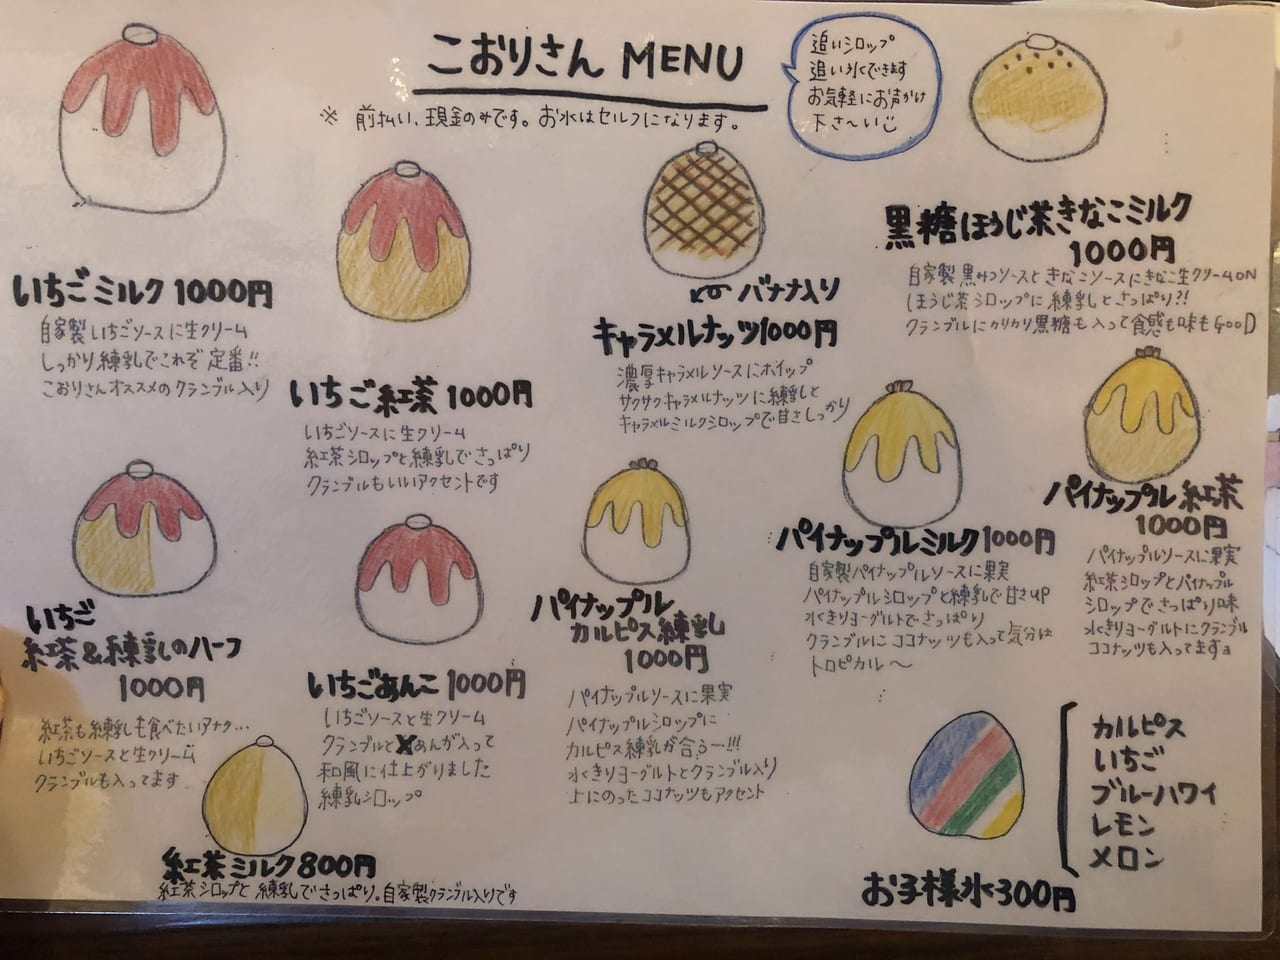 こおりさん MENU
※ 前払い、現金のみです。お水はセルフになります。
追いシロップ
追い氷できます
お気軽にお声がけ
下さ〜い
いちごミルク 1000円
自家製いちごソースに生クリーム
しっかり練乳でこれぞ定番!!
こおりさんオススメのクランブル入り
いちご紅茶 1000円
いちごソースに生クリーム
紅茶シロップと練乳でさっぱり
クランブルもいいアクセントです
バナナ入り
キャラメルナッツ1000円
濃厚キャラメルソースにホイップ
サクサクキャラメルナッツに練乳と
キャラメルミルクシロップで甘さしっかり
黒糖ほうじ茶きなこミルク
1000円
自家製黒みつソースときなこソースにきなこ生クリームON
ほうじ茶シロップに練乳とさっぱり?!
クランブルにカリカリ黒糖も入って食感も味もGOOD
いちご
紅茶&練乳のハーフ
1000円
紅茶も練乳も食べたいアナタ...
いちごソースと生クリーム
クランブルも入ってます
いちごあんこ 1000円
いちごソースと生クリーム
クランブルとあんが入って
和風に仕上がりました
練乳シロップ
パイナップル
カルピス練乳
1000円
パイナップルソースに果実
パイナップルシロップに
カルピス練乳が合うー!!!
水きりヨーグルトとクランブル入り
上にのったココナッツもアクセント
パイナップルミルク1000円
自家製パイナップルソースに果実
パイナップルシロップと練乳で甘さup
水きりヨーグルトでさっぱり
クランブルにココナッツも入って気分は
トロピカル〜
パイナップル紅茶
1000円
パイナップルソースに果実
紅茶シロップとパイナップル
シロップでさっぱり味
水きりヨーグルトにクランブル
ココナッツも入ってますョ
紅茶ミルク800円
紅茶シロップと練乳でさっぱり。自家製クランブル入りです
カルピス
いちご
ブルーハワイ
レモン
メロン
お子様氷300円